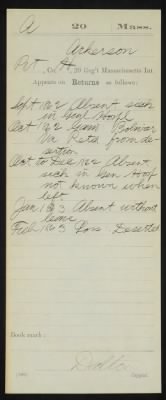 A 20 Mass.
Ackerson
Pvt, Co. H, 20 Reg't Massachusetts Inf.
Appears on Returns as follows:
Sept 1862 Absent sick
in Genl Hospl
Oct 1862 Gain Bolivar
Va Retd from de
sertion
Oct to Dec 1862 Absent
sick in Gen Hosp
not known when
left
Jan 1863 Absent without
leave
Feb 1863 Loss Deserted
Book mark:
Copyist.